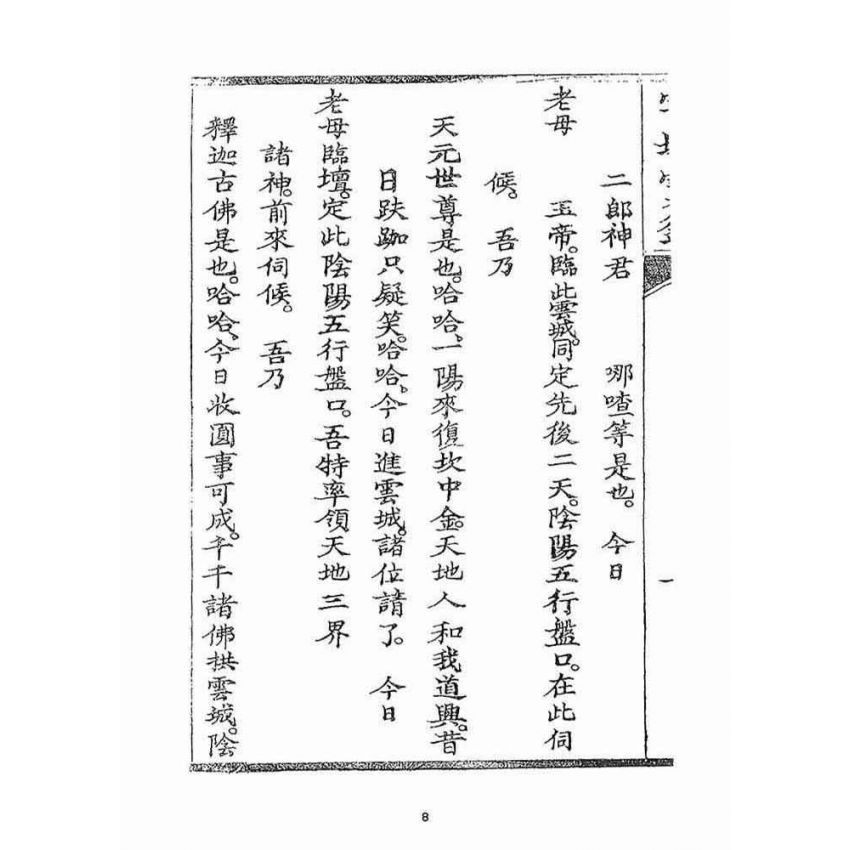 二郎神君　哪喳等是也。今日
老母　玉帝。臨此雲城。同定先後二天。陰陽五行盤口。在此伺
候。吾乃
天元世尊是也。哈哈。一陽來復坎中金。天地人和我道興。昔
日趺跏只疑笑。哈哈。今日進雲城。諸位請了。今日
老母臨壇。定此陰陽五行盤口。吾特率領天地三界
諸神。前來伺候。吾乃
釋迦古佛是也。哈哈。今日收圓事可成。千千諸佛拱雲城。陰
8